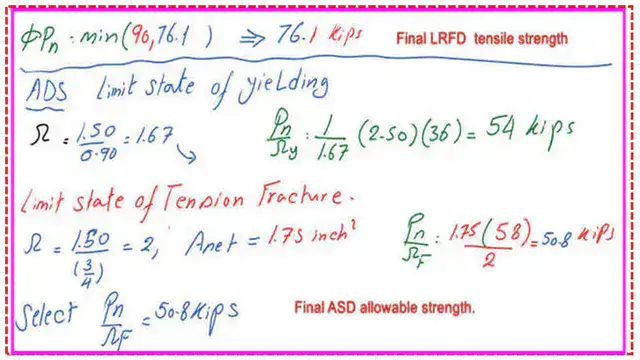 ϕPn : min(90,76.1) ⇒ 76.1 kips Final LRFD tensile strength
ADS Limit state of yielding
Ω = 1.50/0.90 = 1.67 Pn/Ωy : 1/1.67 (2.50)(36) = 54 kips
Limit state of Tension Fracture.
Ω = 1.50/(3/4) = 2, Anet = 1.75 inch² Pn/ΩF : 1.75(58)/2 = 50.8 kips
Select Pn/ΩF = 50.8 kips Final ASD allowable strength.